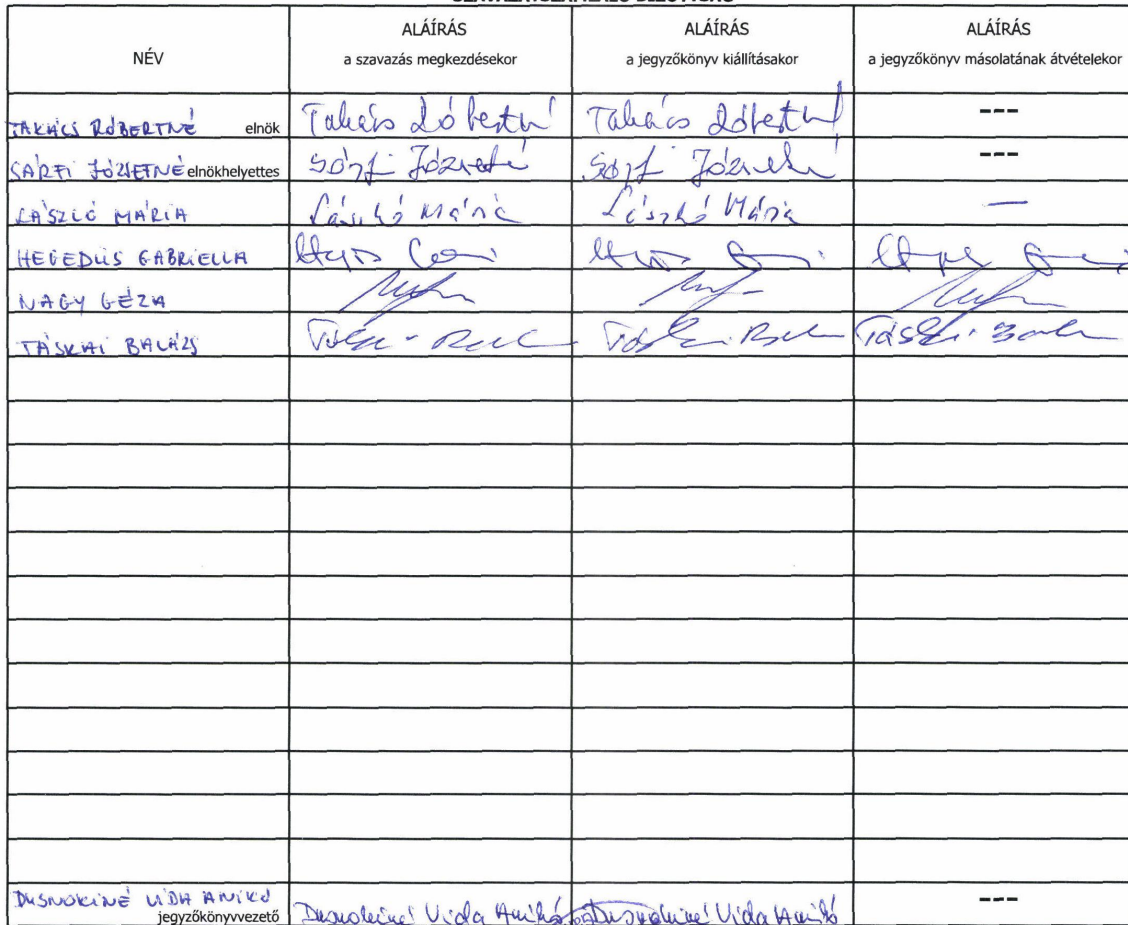 NÉV
ALÁÍRÁS
a szavazás megkezdésekor
ALÁÍRÁS
a jegyzőkönyv kiállításakor
ALÁÍRÁS
a jegyzőkönyv másolatának átvételekor
TAKÁCS RÓBERTNÉ elnök Takács Róbertné Takács Róbertné ---
SÁRFI JÓZSEFNÉ elnökhelyettes Sárfi Józsefné Sárfi Józsefné ---
LÁSZLÓ MÁRIA László Mária László Mária —
HEGEDŰS GABRIELLA
NAGY GÉZA
TÁSKAI BALÁZS
DUSNOKINÉ VIDA ANIKÓ
jegyzőkönyvvezető Dusnokiné Vida Anikó Dusnokiné Vida Anikó ---